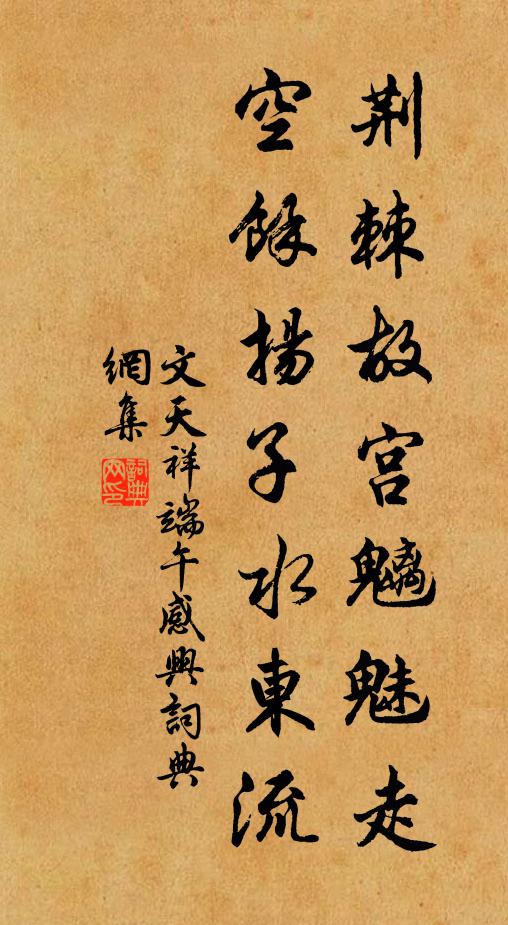 荆棘故宫魑魅走
空餘揚子水東流
文天祥端午感興詞典
網集
詞典
网印